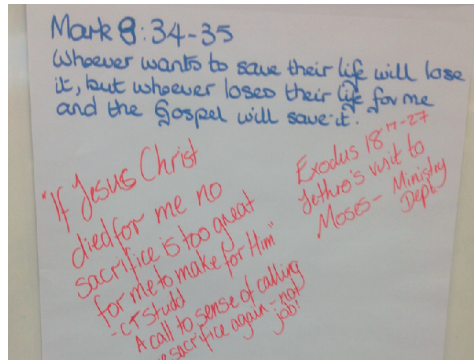 Mark 8:34-35
Whoever wants to save their life will lose
it, but whoever loses their life for me
and the Gospel will save it.
"If Jesus Christ
died for me no
sacrifice is too great
for me to make for Him"
- CT Studd
A call to sense of calling
sacrifice again - not
job!
Exodus 18 17-27
Jethro's visit to
Moses - Ministry
Dept